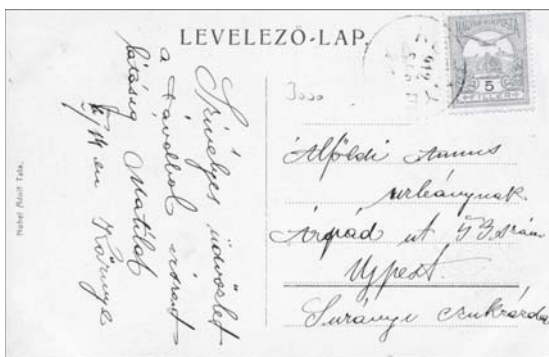 LEVELEZŐ-LAP.
MAGYAR KIR. POSTA
5
FILLÉR
Szivélyes üdvözlet
a távolból viszont
látásig Matild
Környe
Alföldi Annus
urleánynak
Árpád ut 53 szám
Ujpest.
Surányi czukrárda
Nobel Adolf Tata.